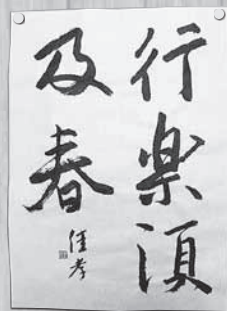 行楽須
及春
佳孝